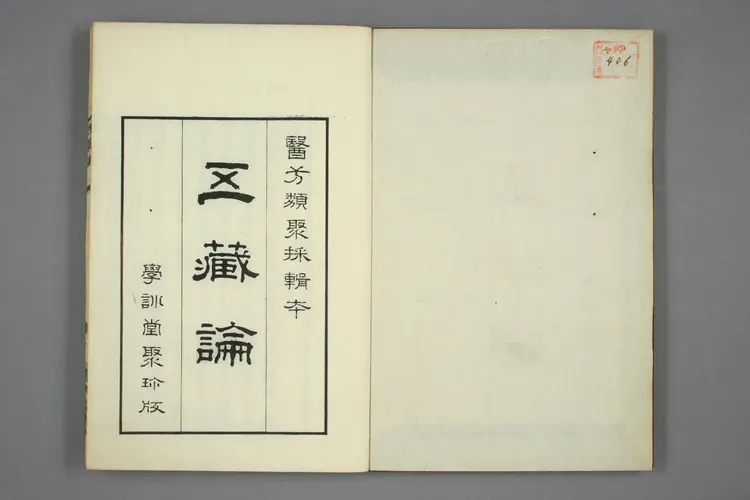 醫方類聚採輯本
五藏論
學訓堂聚珍版
406